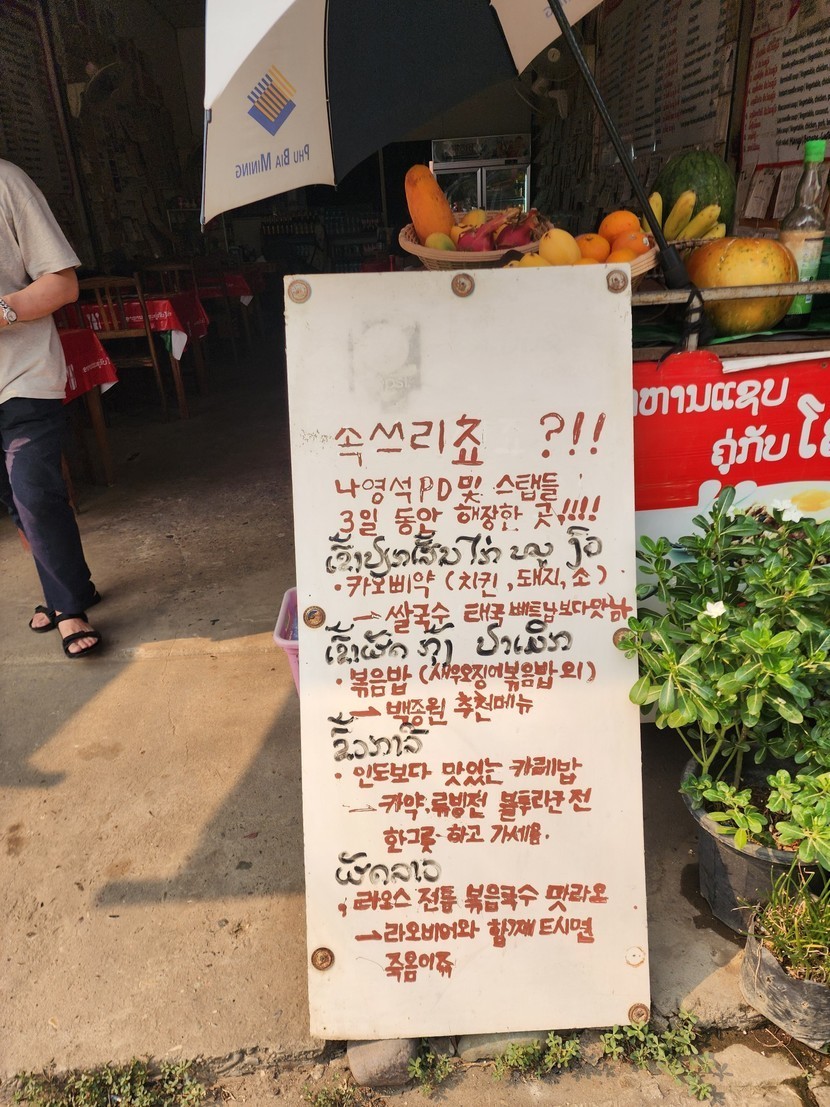 PHU BIA MINING
속쓰리죠 ?!!!
나영석 PD 및 스탭들
3일 동안 해장한 곳!!!!
ເຂົ້າປຽກເສັ້ນ ໄກ່ ໝູ ງົວ
·카오삐약 (치킨, 돼지, 소)
→쌀국수 태국 베트남보다맛나
ເຂົ້າຜັດ ກຸ້ງ ປາເມິກ
·볶음밥 (새우오징어볶음밥 외)
→백종원 추천메뉴
·인도보다 맛있는 카레밥
→카약.튜빙전 블루라군전
한그릇 하고 가세용.
ຜັດລາວ
·라오스 전통 볶음국수 팟라오
→라오비어와 함께 드시면
죽음이쥬
ຫານແຊບ
ຄູ່ກັບ